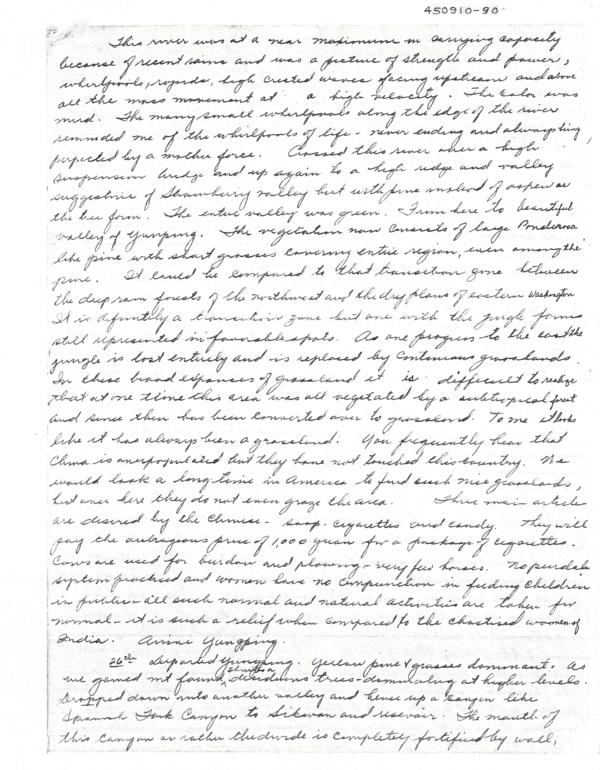 450910-90
This river was at a near maximum in carrying capacity
because of recent rains and was a picture of strength and power,
whirlpools, rapids, high crested waves facing upstream and above
all the mass movement at a high velocity. The color was
mud. The many small whirlpools along the edge of the river
reminded me of the whirlpools of life - never ending and always being
perfected by a mother force. Crossed this river over a high
suspension bridge and up again to a high ridge and valley
suggestive of Strawberry valley but with pine instead of aspen as
the tree form. The entire valley was green. From here to beautiful
valley of Yungping. The vegetation now consists of large Ponderosa
like pine with short grasses covering entire region, even among the
pine. It could be compared to that transition zone between
the deep rain forests of the northwest and the dry plains of eastern Washington
It is definitely a transition zone but one with the jungle forms
still represented in favorable spots. As one progress to the east the
jungle is lost entirely and is replaced by continuous grasslands.
In these broad expanses of grassland it is difficult to realize
that at one time this area was all vegetated by a subtropical forest
and since then has been converted over to grassland. To me it looks
like it has always been a grassland. You frequently hear that
China is overpopulated but they have not touched this country. We
would look a long time in America to find such nice grasslands,
but over here they do not even graze the area. Three main article
are desired by the Chinese - soap - cigarettes and candy. They will
pay the outrageous price of 1,000 yuan for a package of cigarettes.
Cows are used for burden and plowing - very few horses. No purdah
system practised and women have no compunction in feeding children
in public - all such normal and natural activities are taken for
normal - it is such a relief when compared to the chastised women of
India. Arrive Yungping.
26th Departed Yungping. Yellow pine & grasses dominant. As
we gained alt found deciduous trees - dominating at higher levels.
Dropped down into another valley and hence up a canyon like
Spanish Fork Canyon to and reservoir. The mouth of
this canyon or rather the divide is completely fortified by wall,